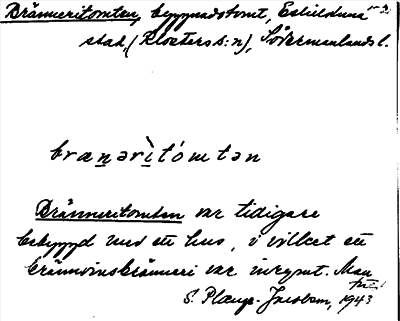 Bränneritomten, bebyggnadstomt, Eskilstuna
stad, (Klosters s:n), Södermanlands l.
brænərìtómtən
Bränneritomten var tidigare
bebyggd med ett hus, i vilket ett
brännvinsbränneri var inrymt. Man
S. Plaup-Jacobsen, 1943